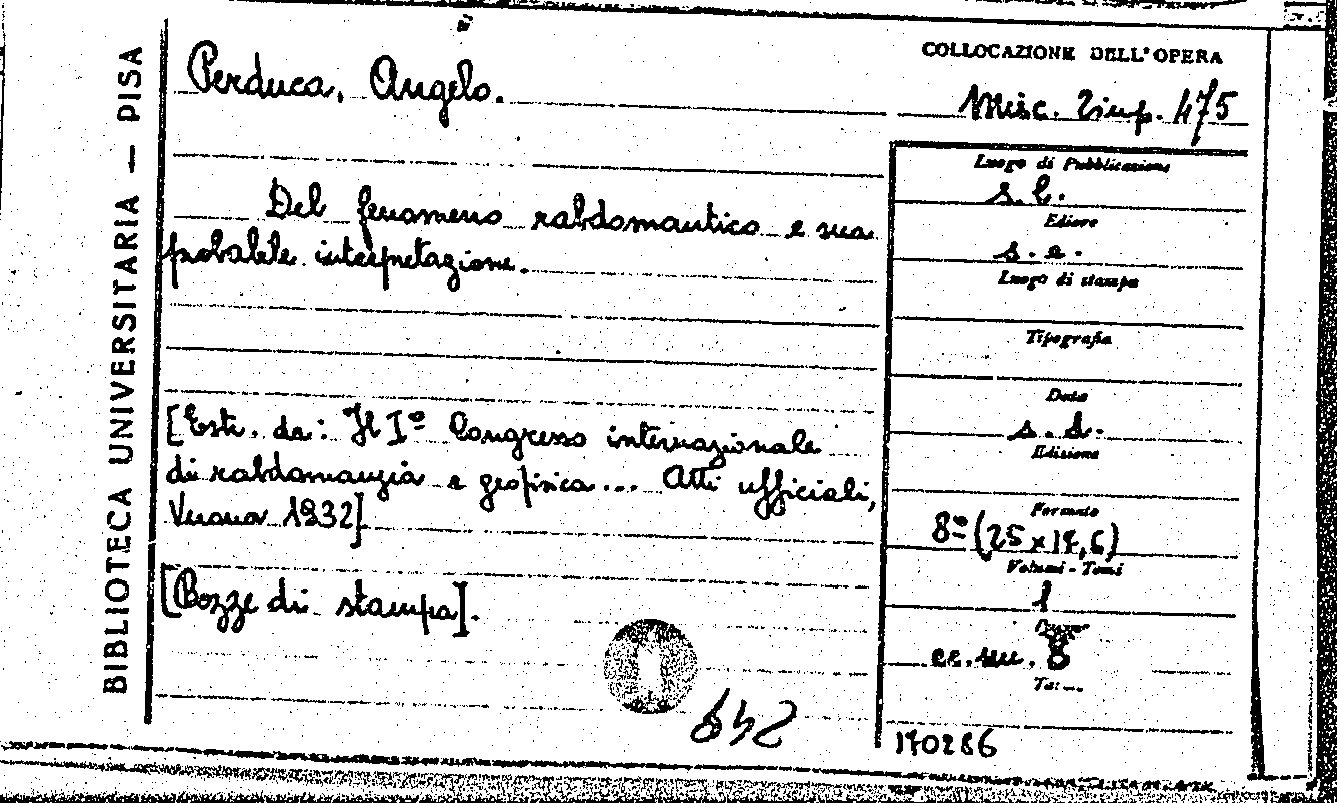 BIBLIOTECA UNIVERSITARIA — PISA
Perduca, Angelo.
Del fenomeno rabdomantico e sua
probabile interpretazione.
[Estr. da: Il Iº Congresso internazionale
di rabdomanzia e geofisica... Atti ufficiali,
Verona 1932]
[Bozze di stampa].
COLLOCAZIONE DELL'OPERA
Misc. Zinp. 475
Luogo di Pubblicazione
s.l.
Editore
s.e.
Luogo di stampa
Tipografia
Data
s.d.
Edizione
Formato
8º (25x17,6)
Volumi - Tomi
1
cc. nn. 8
170286